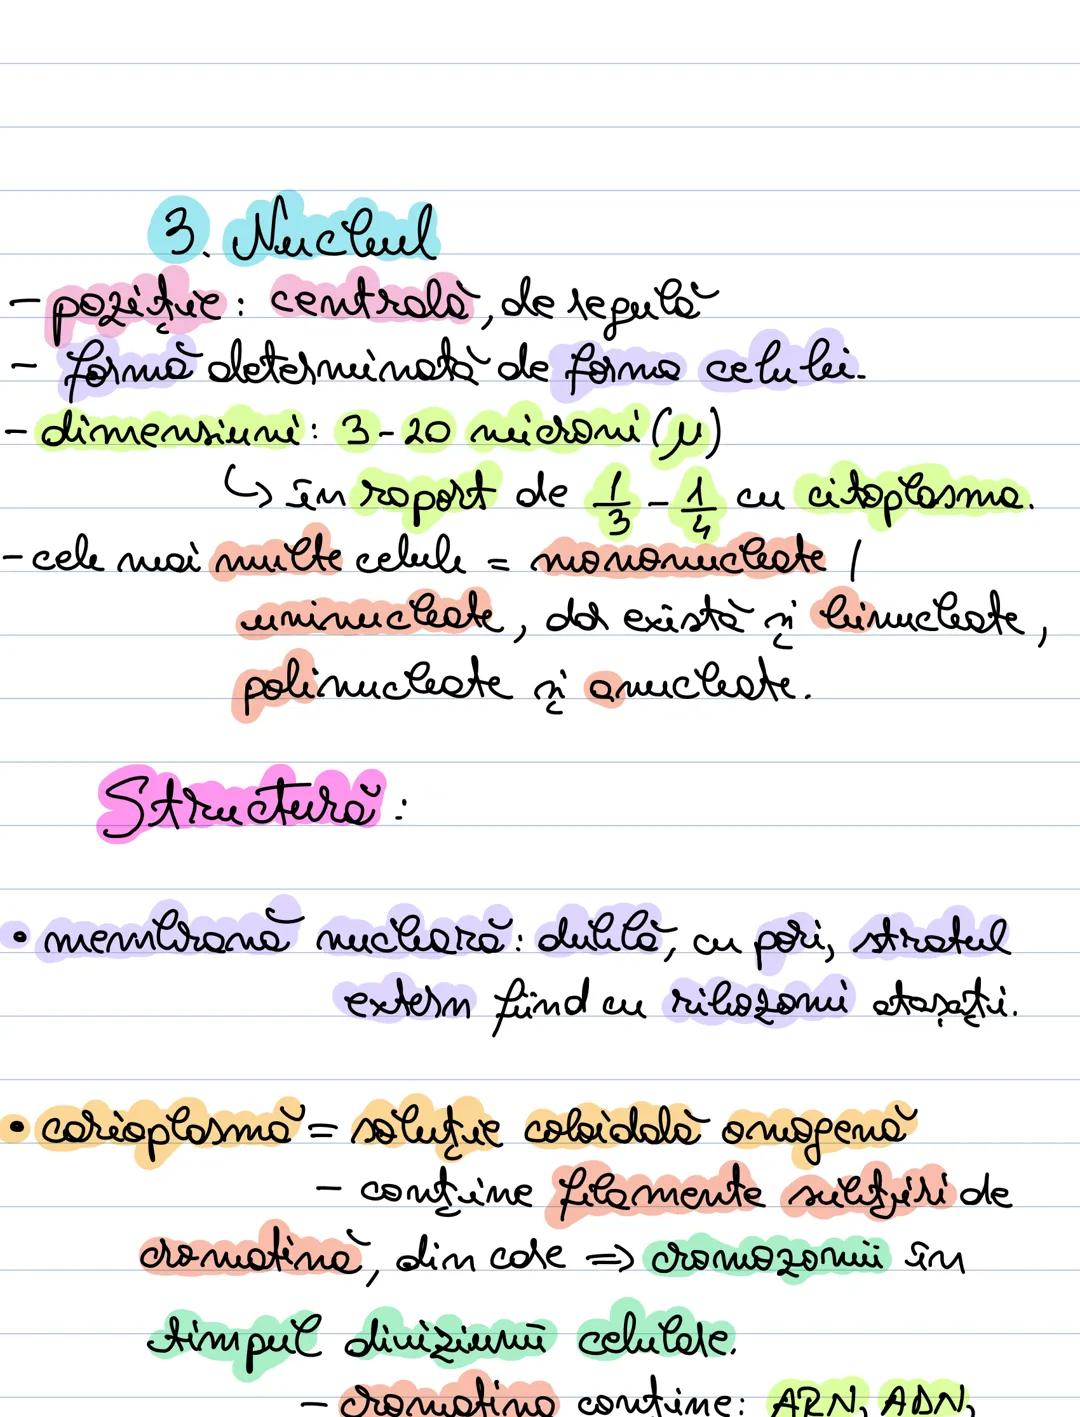 3. Nucleul
- poziție: centrală, de regulă
- formă determinată de forma celulei.
- dimensiuni: 3-20 microni (μ)
↳ în raport de 1/3 - 1/4 cu citoplasma.
- cele mai multe celule = mononucleate /
uninucleate, dar există și binucleate,
polinucleate și anucleate.
Structură:
• membrană nucleară: dublă, cu pori, stratul
extern fiind cu ribozomi atașați.
• carioplasmă = soluție coloidală omogenă
- conține filamente subțiri de
cromatină, din care => cromozomii în
timpul diviziunii celulare.
- cromatina conține: ARN, ADN,